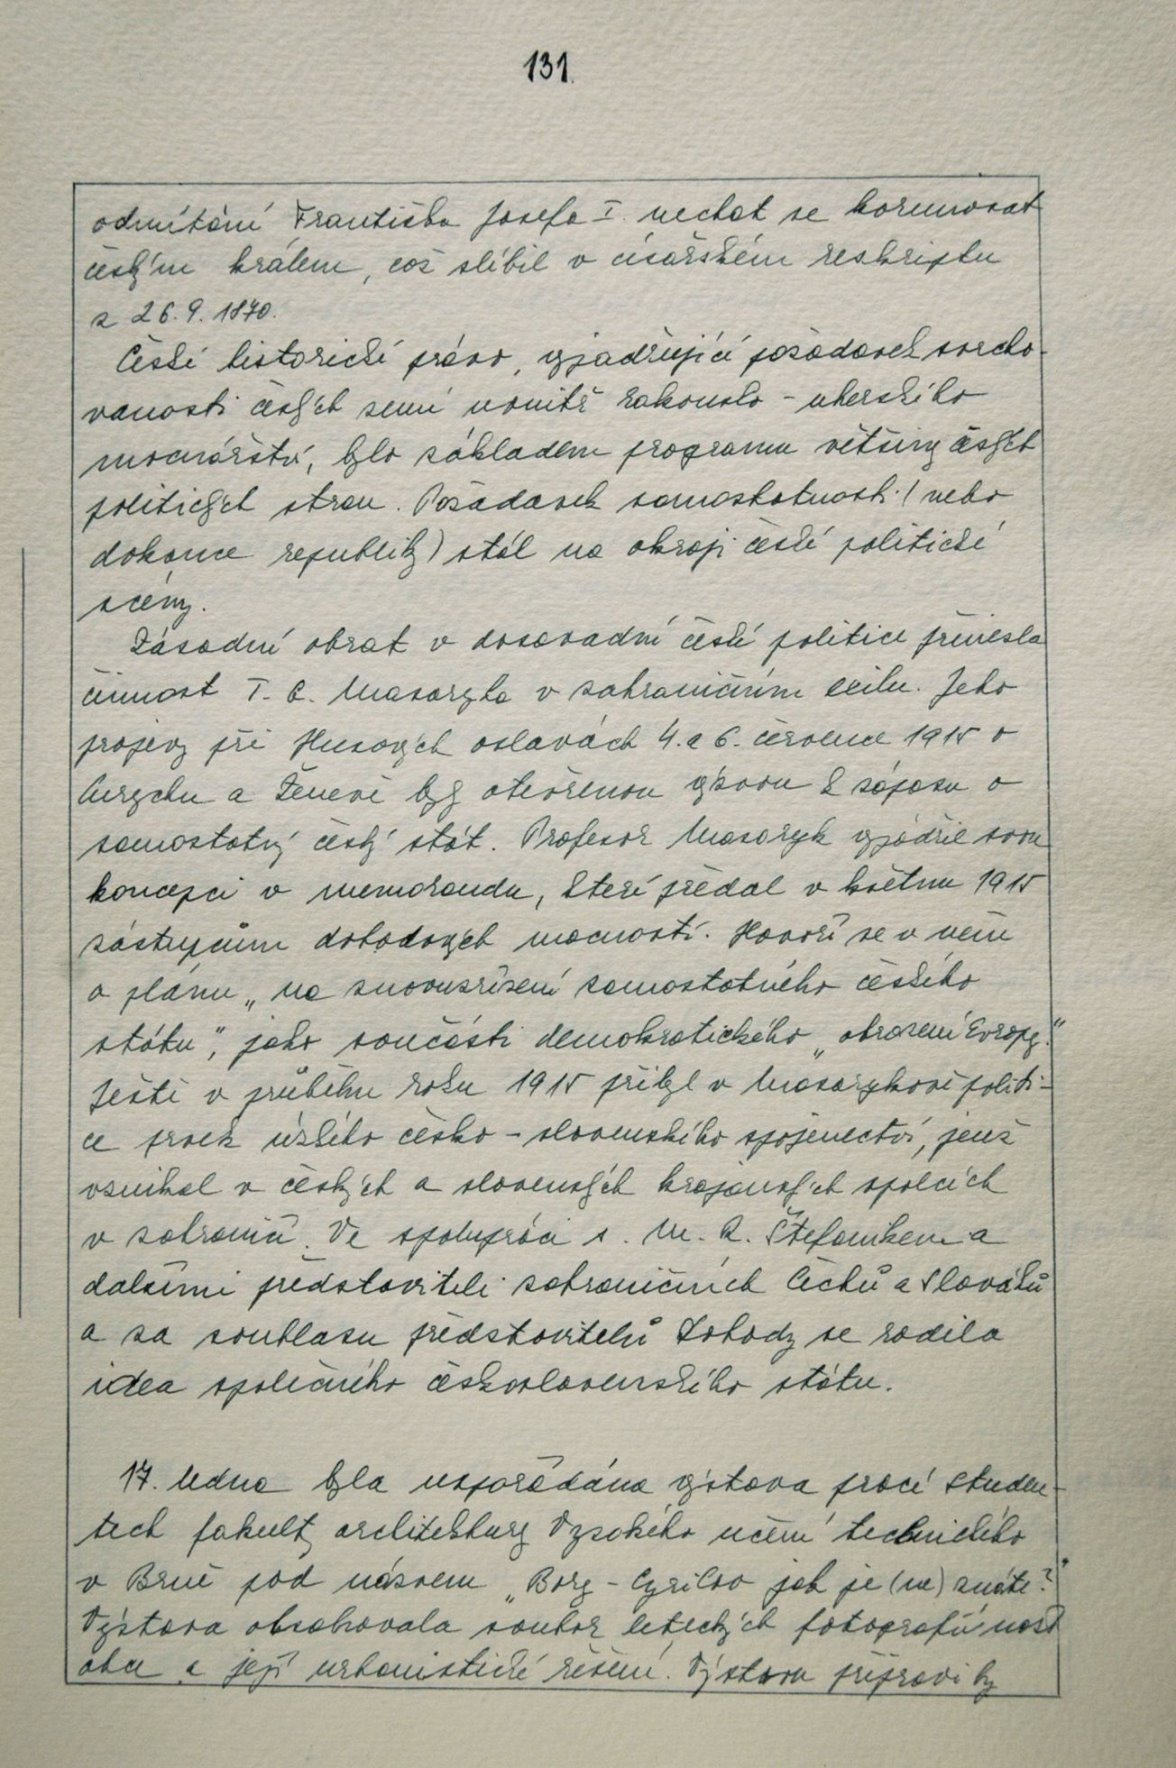 131.
odmítání Františka Josefa I. nechat se korunovat
českým králem, což slíbil v císařském reskriptu
z 26. 9. 1870.
České historické právo, vyjadřující požadavek svrcho-
vanosti českých zemí uvnitř rakousko - uherského
mocnářství, bylo základem programu většiny českých
politických stran. Požadavek samostatnosti (nebo
dokonce republiky) stál na okraji české politické
scény.
Zásadní obrat v dosavadní české politice přinesla
činnost T. G. Masaryka v zahraničním exilu. Jeho
projevy při Husových oslavách 4. a 6. července 1915 v
Curychu a Ženevě byly otevřenou výzvou k zápasu o
samostatný český stát. Profesor Masaryk vyjádřil svou
koncepci v memorandu, které předal v květnu 1915
zástupcům dohodových mocností. Hovoří se v něm
o plánu „na znovuzřízení samostatného českého
státu", jako součásti demokratického „obrození Evropy."
Ještě v průběhu roku 1915 přibyl v Masarykově politi-
ce prvek užšího česko - slovenského spojenectví, jenž
vznikal v českých a slovenských krajanských spolcích
v zahraničí. Ve spolupráci s. M. R. Štefanikem a
dalšími představiteli zahraničních Čechů a Slováků
a za souhlasu představitelů Dohody se rodila
idea společného československého státu.
17. ledna byla uspořádána výstava prací studen-
tech fakulty architektury Vysokého učení technického
v Brně pod názvem „Bory - Cyrilov jak je (ne) znáte?"
Výstava obsahovala soubor leteckých fotografií naší
obce a její urbanistické řešení. Výstavu připravily